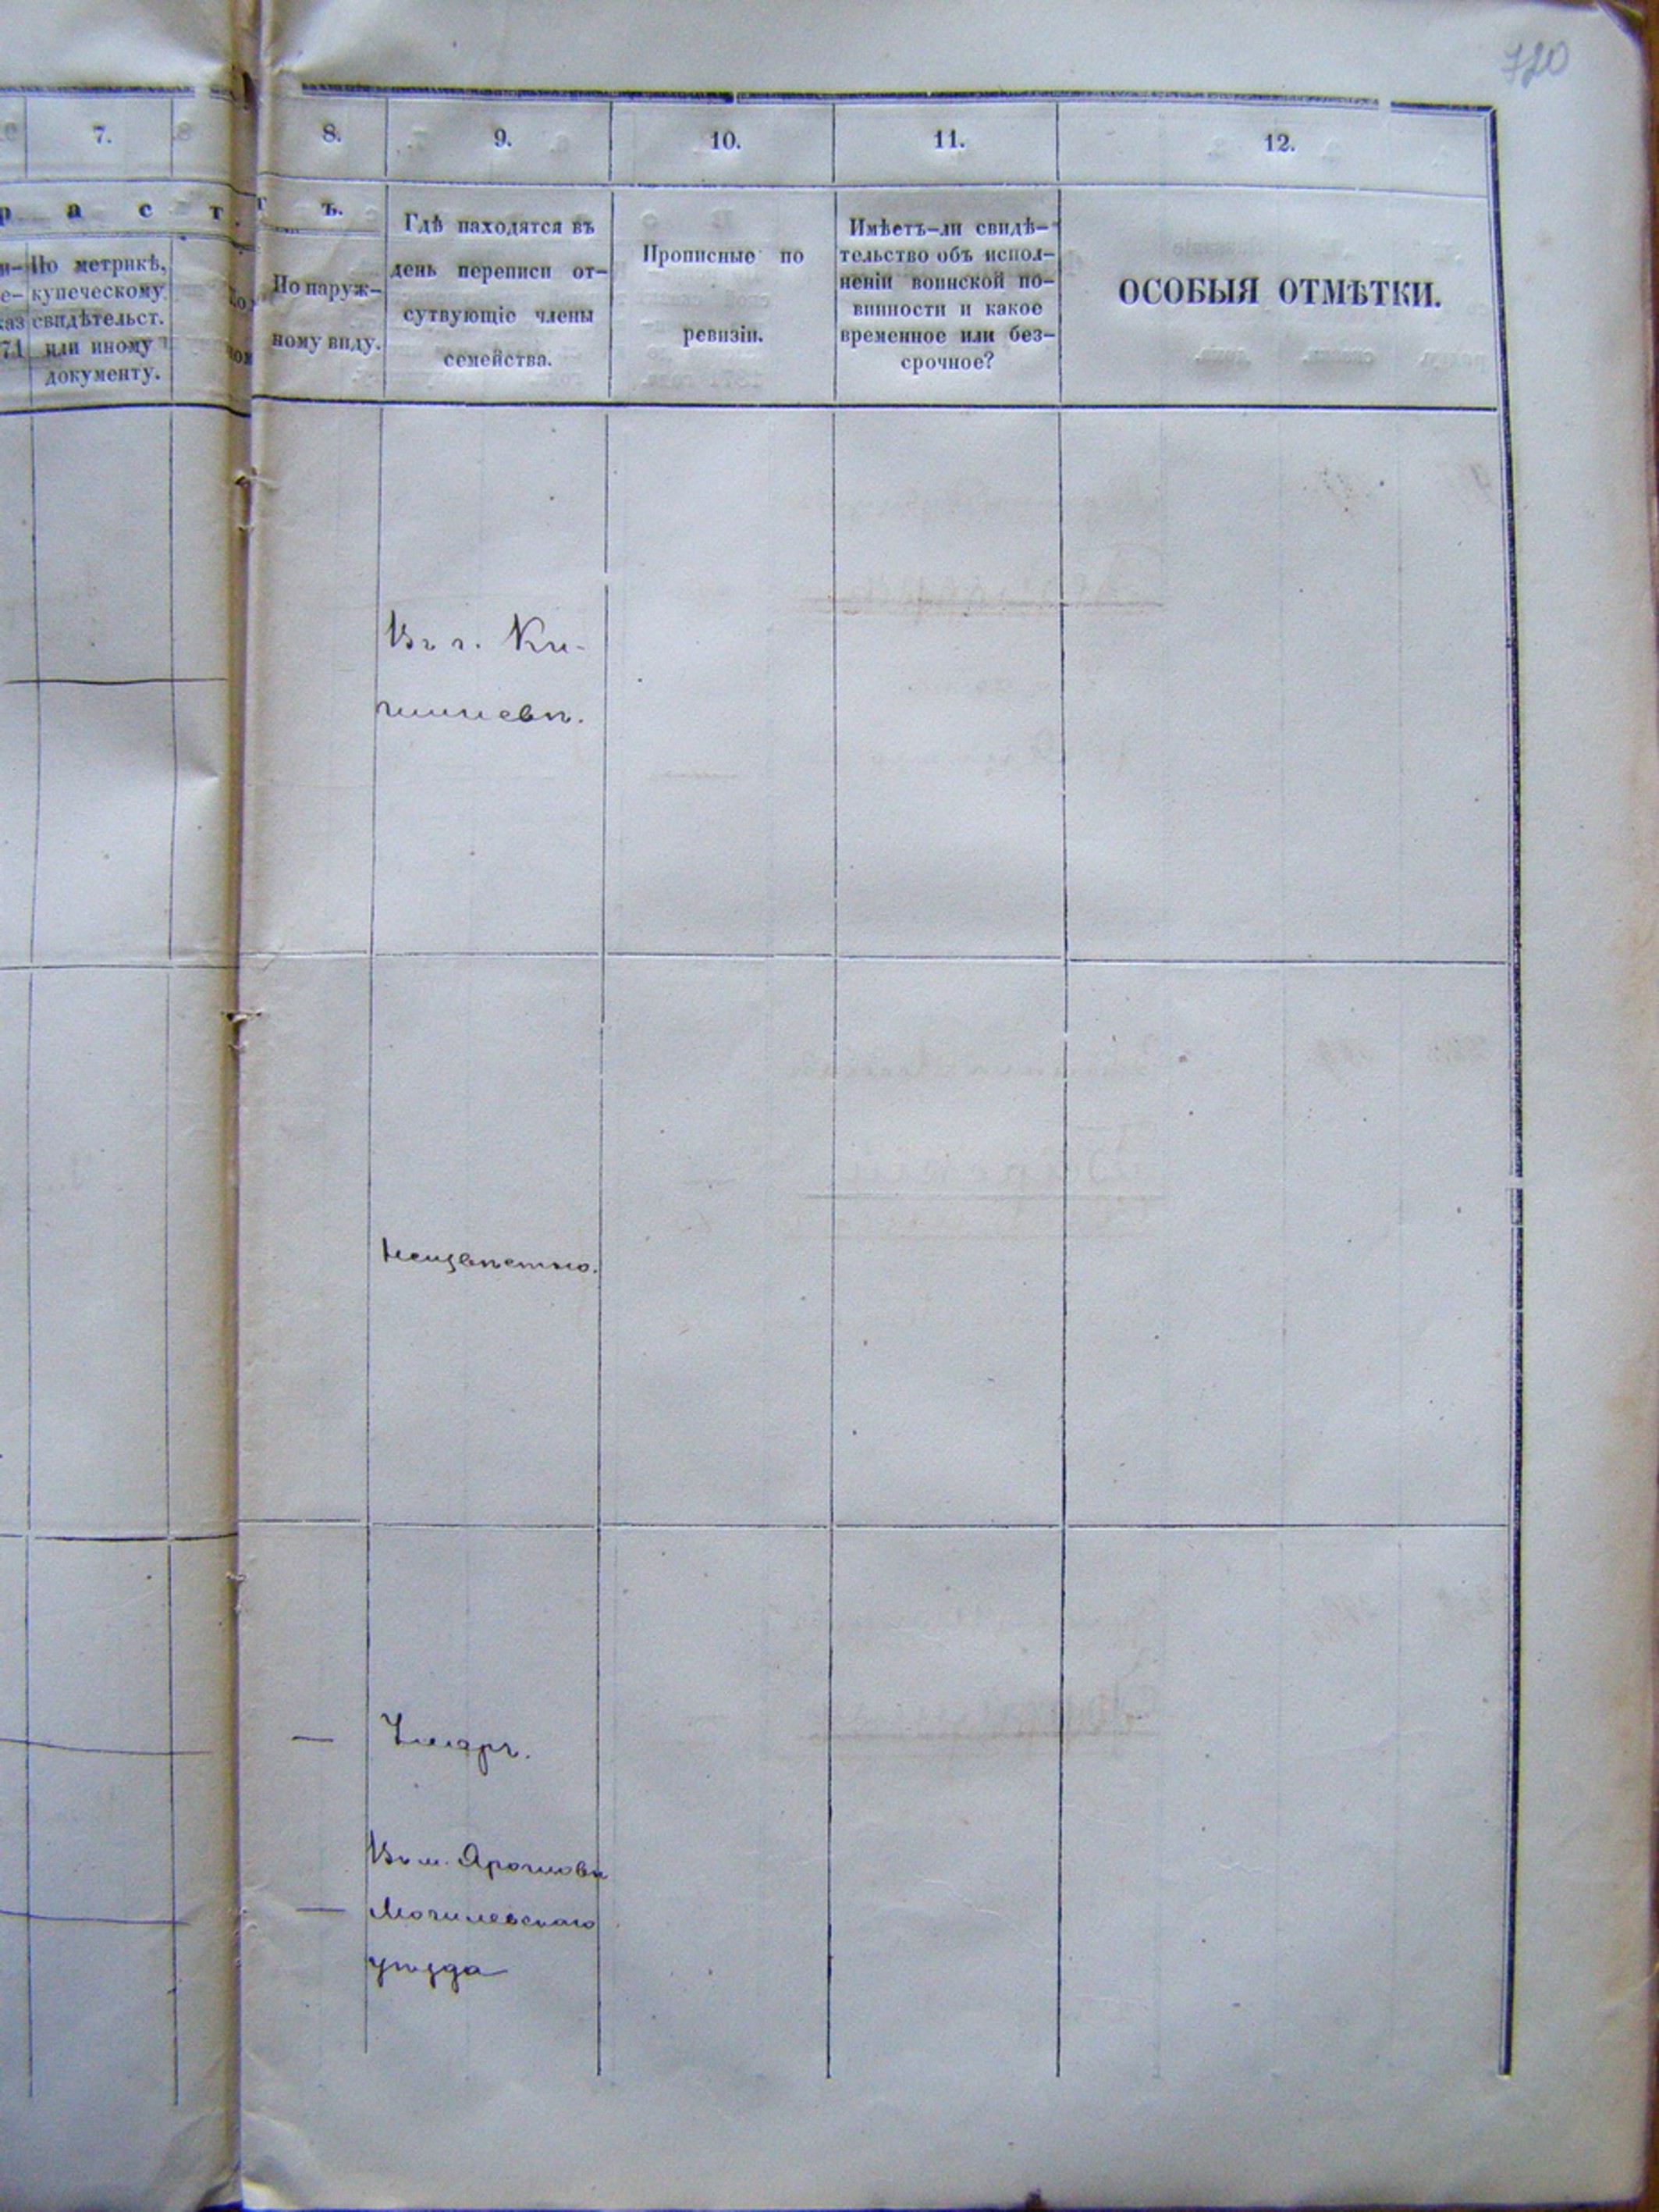 720
7.
8.
9.
10.
11.
12.
р а с т
ъ.
По метрикѣ,
купеческому
свидѣтельст.
или иному
документу.
По наруж-
ному виду.
Гдѣ находятся въ
день переписи от-
сутвующіе члены
семейства.
Прописные по
ревизіи.
Имѣетъ-ли свидѣ-
тельство объ испол-
неніи воинской по-
винности и какое
временное или без-
срочное?
ОСОБЫЯ ОТМѢТКИ.
Въ г. Ки-
шиневѣ.
Неизвѣстно.
— Умеръ.
Въ м. Ярышовѣ
— Могилевскаго
уѣзда